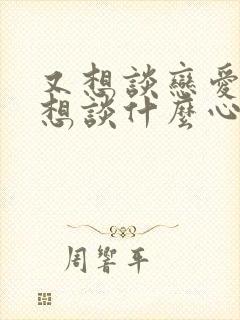 又想談戀愛
想談什麼心
周響平